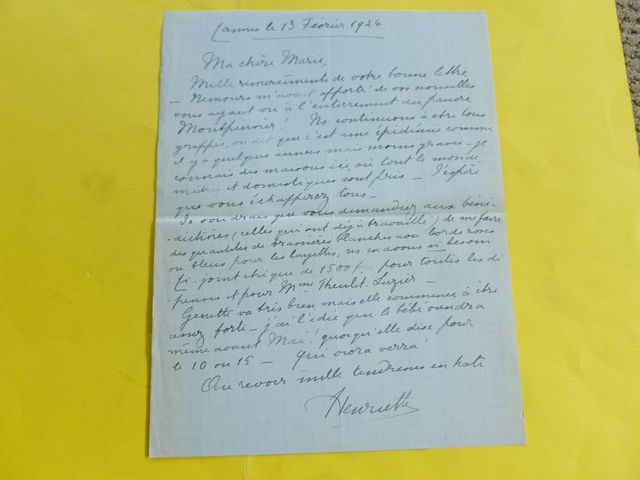 Cannes le 13 Février 1924
Ma chère Marie,
Mille remerciments de votre bonne lettre
— Nemours m'avait apporté de vos nouvelles
vous ayant vu à l'enterrement du pauvre
Montpensier! Ns continuons à être tous
grippés, on dit que c'est une épidémie comme
il y a quelques années mais moins grave — Je
connais des maisons ici où tout le monde,
maîtres et domestiques sont pris — J'espère
que vous échapperez tous —
Je voudrais que vous demandiez aux béné-
-dictines (celles qui ont déjà travaillé) de me faire
des quantités de brassières blanches avec bords roses
ou bleus pour les layettes, ns en avons si besoin
Ci-joint chèque de 1500 f pour toutes les dé
penses et pour Mme Luzier.
Genette va très bien, mais elle commence à être
assez forte — j'ai l'idée que le bébé viendra
même avant Mai! quoiqu'elle dise pour
le 10 ou 15 — Qui vivra verra!
Au revoir mille tendresses en hâte
Henriette